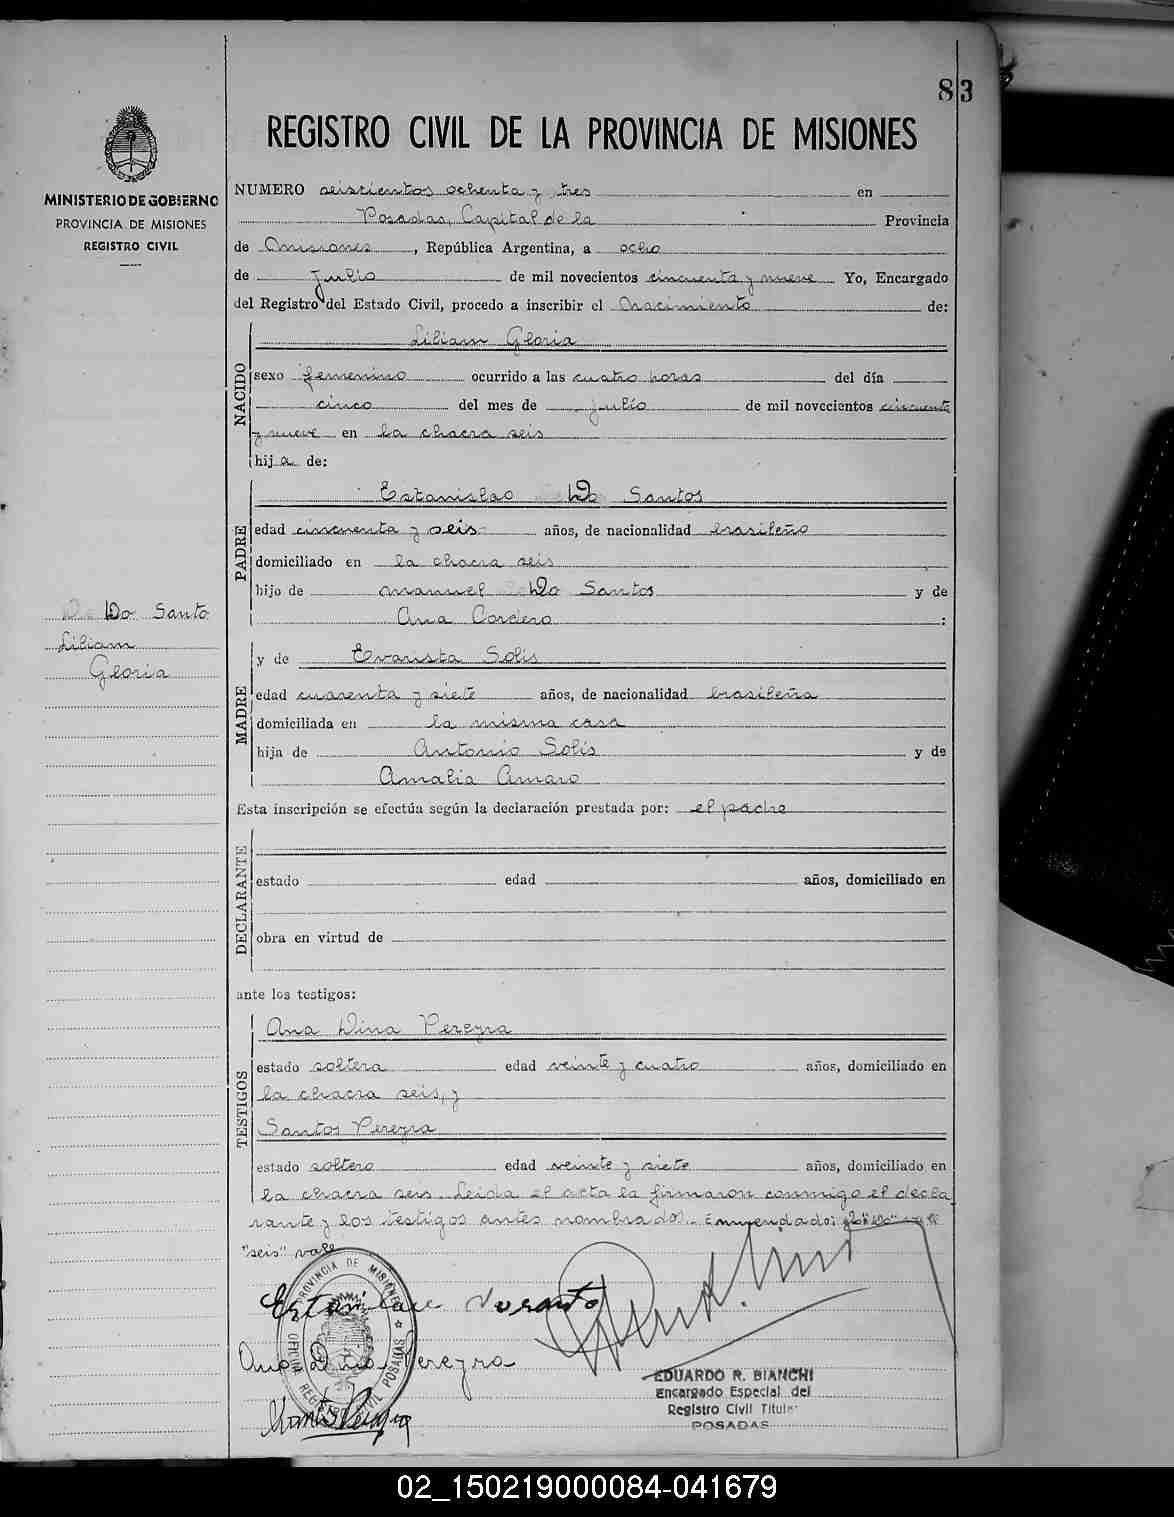 83
REGISTRO CIVIL DE LA PROVINCIA DE MISIONES
MINISTERIO DE GOBIERNO
PROVINCIA DE MISIONES
REGISTRO CIVIL
NUMERO seiscientos ochenta y tres en
Posadas, Capital de la Provincia
de Misiones, República Argentina, a ocho
de Julio de mil novecientos cincuenta y nueve Yo, Encargado
del Registro del Estado Civil, procedo a inscribir el Nacimiento de:
NACIDO
Liliam Gloria
sexo femenino ocurrido a las cuatro horas del día
cinco del mes de julio de mil novecientos cincuenta
y nueve en la chacra seis
hija de:
PADRE
Estanislao Do Santos
edad cincuenta y seis años, de nacionalidad brasileño
domiciliado en la chacra seis
hijo de Manuel Do Santos y de
Ana Cordero :
Do Santo
Liliam
Gloria
MADRE
y de Evarista Solis
edad cuarenta y siete años, de nacionalidad brasileña
domiciliada en la misma casa
hija de Antonio Solis y de
Amalia Amaro
Esta inscripción se efectúa según la declaración prestada por: el padre
DECLARANTE
estado edad años, domiciliado en
obra en virtud de
ante los testigos:
TESTIGOS
Ana Dina Pereyra
estado soltera edad veinte y cuatro años, domiciliado en
la chacra seis, y
Santos Pereyra
estado soltero edad veinte y siete años, domiciliado en
la chacra seis. Leida el acta la firmaron conmigo el decla
rante y los testigos antes nombrados.. Enmendado:
"seis" vale
PROVINCIA DE MISIONES
OFICINA REGISTRO CIVIL POSADAS
Ana Dina Pereyra
Santos Pereyra
EDUARDO R. BIANCHI
Encargado Especial del
Registro Civil Titular
POSADAS
02_150219000084-041679